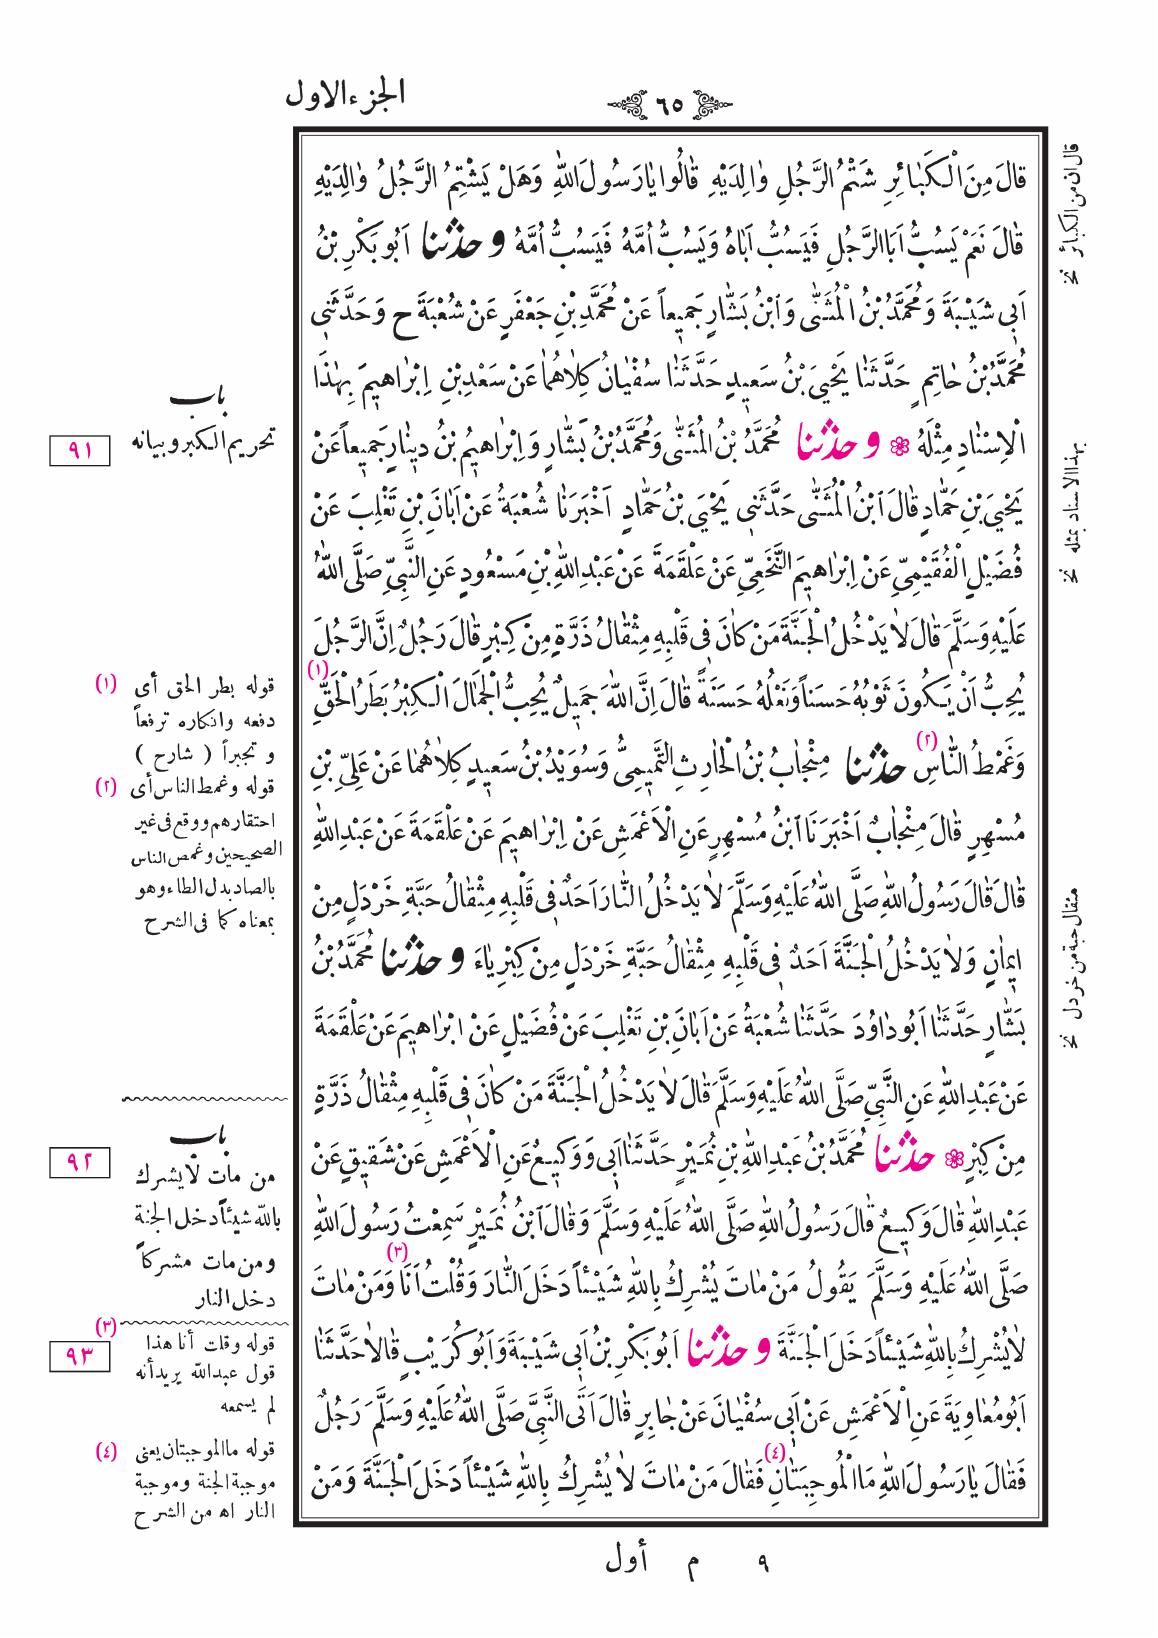 الجزء الاول
٦٥
قَالَ مِنَ الْكَبَائِرِ شَتْمُ الرَّجُلِ وَالِدَيْهِ قَالُوا يَا رَسُولَ اللهِ وَهَلْ يَشْتِمُ الرَّجُلُ وَالِدَيْهِ
قَالَ نَعَمْ يَسُبُّ اَبَا الرَّجُلِ فَيَسُبُّ اَبَاهُ وَيَسُبُّ اُمَّهُ فَيَسُبُّ اُمَّهُ و حدثنا اَبُو بَكْرِ بْنُ
اَبِى شَيْبَةَ وَمُحَمَّدُ بْنُ الْمُثَنّٰى وَابْنُ بَشَّارٍ جَمِيعاً عَنْ مُحَمَّدِ بْنِ جَعْفَرٍ عَنْ شُعْبَةَ ح وَحَدَّثَنِى
مُحَمَّدُ بْنُ حَاتِمٍ حَدَّثَنَا يَحْيَى بْنُ سَعِيدٍ حَدَّثَنَا سُفْيَانُ كِلَاهُمَا عَنْ سَعْدِ بْنِ اِبْرَاهِيمَ بِهٰذَا
الْاِسْنَادِ مِثْلَهُ و حدثنا مُحَمَّدُ بْنُ الْمُثَنّٰى وَمُحَمَّدُ بْنُ بَشَّارٍ وَاِبْرَاهِيمُ بْنُ دِينَارٍ جَمِيعاً عَنْ
يَحْيَى بْنِ حَمَّادٍ قَالَ ابْنُ الْمُثَنّٰى حَدَّثَنِى يَحْيَى بْنُ حَمَّادٍ اَخْبَرَنَا شُعْبَةُ عَنْ اَبَانَ بْنِ تَغْلِبَ عَنْ
فُضَيْلٍ الْفُقَيْمِىِّ عَنْ اِبْرَاهِيمَ النَّخَعِىِّ عَنْ عَلْقَمَةَ عَنْ عَبْدِ اللهِ بْنِ مَسْعُودٍ عَنِ النَّبِىِّ صَلَّى اللهُ
عَلَيْهِ وَسَلَّمَ قَالَ لَا يَدْخُلُ الْجَنَّةَ مَنْ كَانَ فِى قَلْبِهِ مِثْقَالُ ذَرَّةٍ مِنْ كِبْرٍ قَالَ رَجُلٌ اِنَّ الرَّجُلَ
يُحِبُّ اَنْ يَكُونَ ثَوْبُهُ حَسَناً وَنَعْلُهُ حَسَنَةً قَالَ اِنَّ اللهَ جَمِيلٌ يُحِبُّ الْجَمَالَ الْكِبْرُ بَطَرُ الْحَقِّ (١)
وَغَمْطُ النَّاسِ (٢) حدثنا مِنْجَابُ بْنُ الْحَارِثِ التَّمِيمِىُّ وَسُوَيْدُ بْنُ سَعِيدٍ كِلَاهُمَا عَنْ عَلِىِّ بْنِ
مُسْهِرٍ قَالَ مِنْجَابٌ اَخْبَرَنَا ابْنُ مُسْهِرٍ عَنِ الْاَعْمَشِ عَنْ اِبْرَاهِيمَ عَنْ عَلْقَمَةَ عَنْ عَبْدِ اللهِ
قَالَ قَالَ رَسُولُ اللهِ صَلَّى اللهُ عَلَيْهِ وَسَلَّمَ لَا يَدْخُلُ النَّارَ اَحَدٌ فِى قَلْبِهِ مِثْقَالُ حَبَّةِ خَرْدَلٍ مِنْ
اِيمَانٍ وَلَا يَدْخُلُ الْجَنَّةَ اَحَدٌ فِى قَلْبِهِ مِثْقَالُ حَبَّةِ خَرْدَلٍ مِنْ كِبْرِيَاءَ و حدثنا مُحَمَّدُ بْنُ
بَشَّارٍ حَدَّثَنَا اَبُو دَاوُدَ حَدَّثَنَا شُعْبَةُ عَنْ اَبَانَ بْنِ تَغْلِبَ عَنْ فُضَيْلٍ عَنْ اِبْرَاهِيمَ عَنْ عَلْقَمَةَ
عَنْ عَبْدِ اللهِ عَنِ النَّبِىِّ صَلَّى اللهُ عَلَيْهِ وَسَلَّمَ قَالَ لَا يَدْخُلُ الْجَنَّةَ مَنْ كَانَ فِى قَلْبِهِ مِثْقَالُ ذَرَّةٍ
مِنْ كِبْرٍ حدثنا مُحَمَّدُ بْنُ عَبْدِ اللهِ بْنِ نُمَيْرٍ حَدَّثَنَا اَبِى وَوَكِيعٌ عَنِ الْاَعْمَشِ عَنْ شَقِيقٍ عَنْ
عَبْدِ اللهِ قَالَ وَكِيعٌ قَالَ رَسُولُ اللهِ صَلَّى اللهُ عَلَيْهِ وَسَلَّمَ وَقَالَ ابْنُ نُمَيْرٍ سَمِعْتُ رَسُولَ اللهِ
صَلَّى اللهُ عَلَيْهِ وَسَلَّمَ يَقُولُ مَنْ مَاتَ يُشْرِكُ بِاللهِ شَيْئاً دَخَلَ النَّارَ وَقُلْتُ اَنَا (٣) وَمَنْ مَاتَ
لَا يُشْرِكُ بِاللهِ شَيْئاً دَخَلَ الْجَنَّةَ و حدثنا اَبُو بَكْرِ بْنُ اَبِى شَيْبَةَ وَاَبُو كُرَيْبٍ قَالَا حَدَّثَنَا
اَبُو مُعَاوِيَةَ عَنِ الْاَعْمَشِ عَنْ اَبِى سُفْيَانَ عَنْ جَابِرٍ قَالَ اَتَى النَّبِىَّ صَلَّى اللهُ عَلَيْهِ وَسَلَّمَ رَجُلٌ
فَقَالَ يَا رَسُولَ اللهِ مَا الْمُوجِبَتَانِ (٤) فَقَالَ مَنْ مَاتَ لَا يُشْرِكُ بِاللهِ شَيْئاً دَخَلَ الْجَنَّةَ وَمَنْ
٩ م أول
قال ان من الكبائر نخ
بهذا الاسناد بمثله نخ
مثقال حبة من خردل نخ
باب
تحريم الكبر وبيانه
٩١
(١) قوله بطر الحق أى
دفعه وانكاره ترفعاً
و تجبراً ( شارح )
(٢) قوله وغمط الناس أى
احتقارهم ووقع فى غير
الصحيحين وغمص الناس
بالصاد بدل الطاء وهو
بمعناه كما فى الشرح
باب
٩٢
من مات لا يشرك
بالله شيئاً دخل الجنة
ومن مات مشركاً
دخل النار
(٣) قوله وقلت أنا هذا
٩٣
قول عبدالله يريد أنه
لم يسمعه
(٤) قوله ما الموجبتان يعنى
موجبة الجنة وموجبة
النار اه من الشرح